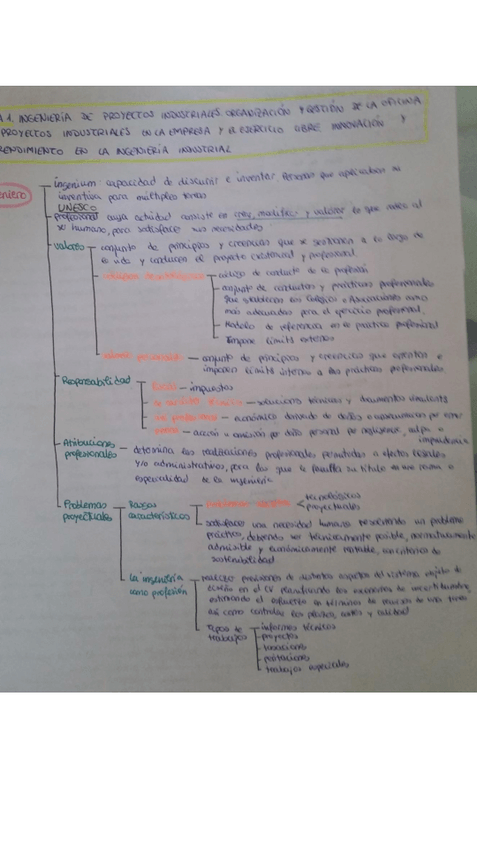 A 1. INGENIERÍA DE PROYECTOS INDUSTRIALES ORGANIZACIÓN Y GESTIÓN DE LA OFICINA
PROYECTOS INDUSTRIALES EN LA EMPRESA Y EL EJERCICIO LIBRE INNOVACIÓN Y
RENDIMIENTO EN LA INGENIERÍA INDUSTRIAL
eniero
ingenium: capacidad de discurrir e inventar. Personas que aplicaban su
inventiva para múltiples
UNESCO
profesional cuya actividad consiste en crear, modificar y valorar lo que rodea al
se humano, para satisfacer sus necesidades
valores
conjunto de principios y creencias que se sostienen a lo largo de
la vida y conducen el proyecto existencial y profesional.
código de conducta de la profesión
conjunto de conductas y prácticas profesionales
que establecen los Colegios o Asociaciones como
más adecuadas para el ejercicio profesional.
Modelo de referencia en la práctica profesional
Impone límites externos
conjunto de principios y creencias que
imponen límites internos a las prácticas profesionales
Responsabilidad
impuestos
soluciones técnicas y documentos
económico derivado de daños o
acción u omisión por daño personal por negligencia, culpa o
imprudencia
Atribuciones
profesionales
determina las realizaciones profesionales permitidas a efectos legales
y/o administrativos, para las que le faculta su título en una rama o
especialidad de la ingeniería
Problemas
proyectuales
Rasgos
característicos
tecnológicos
proyectuales
satisfacer una necesidad humana resolviendo un problema
práctico, debiendo ser técnicamente posible, normativamente
admisible y económicamente rentable, con criterios de
sostenibilidad
La ingeniería
como profesión
realizar previsiones de distintos aspectos del sistema objeto de
estudio en el CV planificando los escenarios de incertidumbre,
estimando el esfuerzo en términos de recursos de una tarea
así como controlar los plazos, costes y calidad
Tipos de
trabajos
informes técnicos
proyectos
tasaciones
peritaciones
trabajos especiales